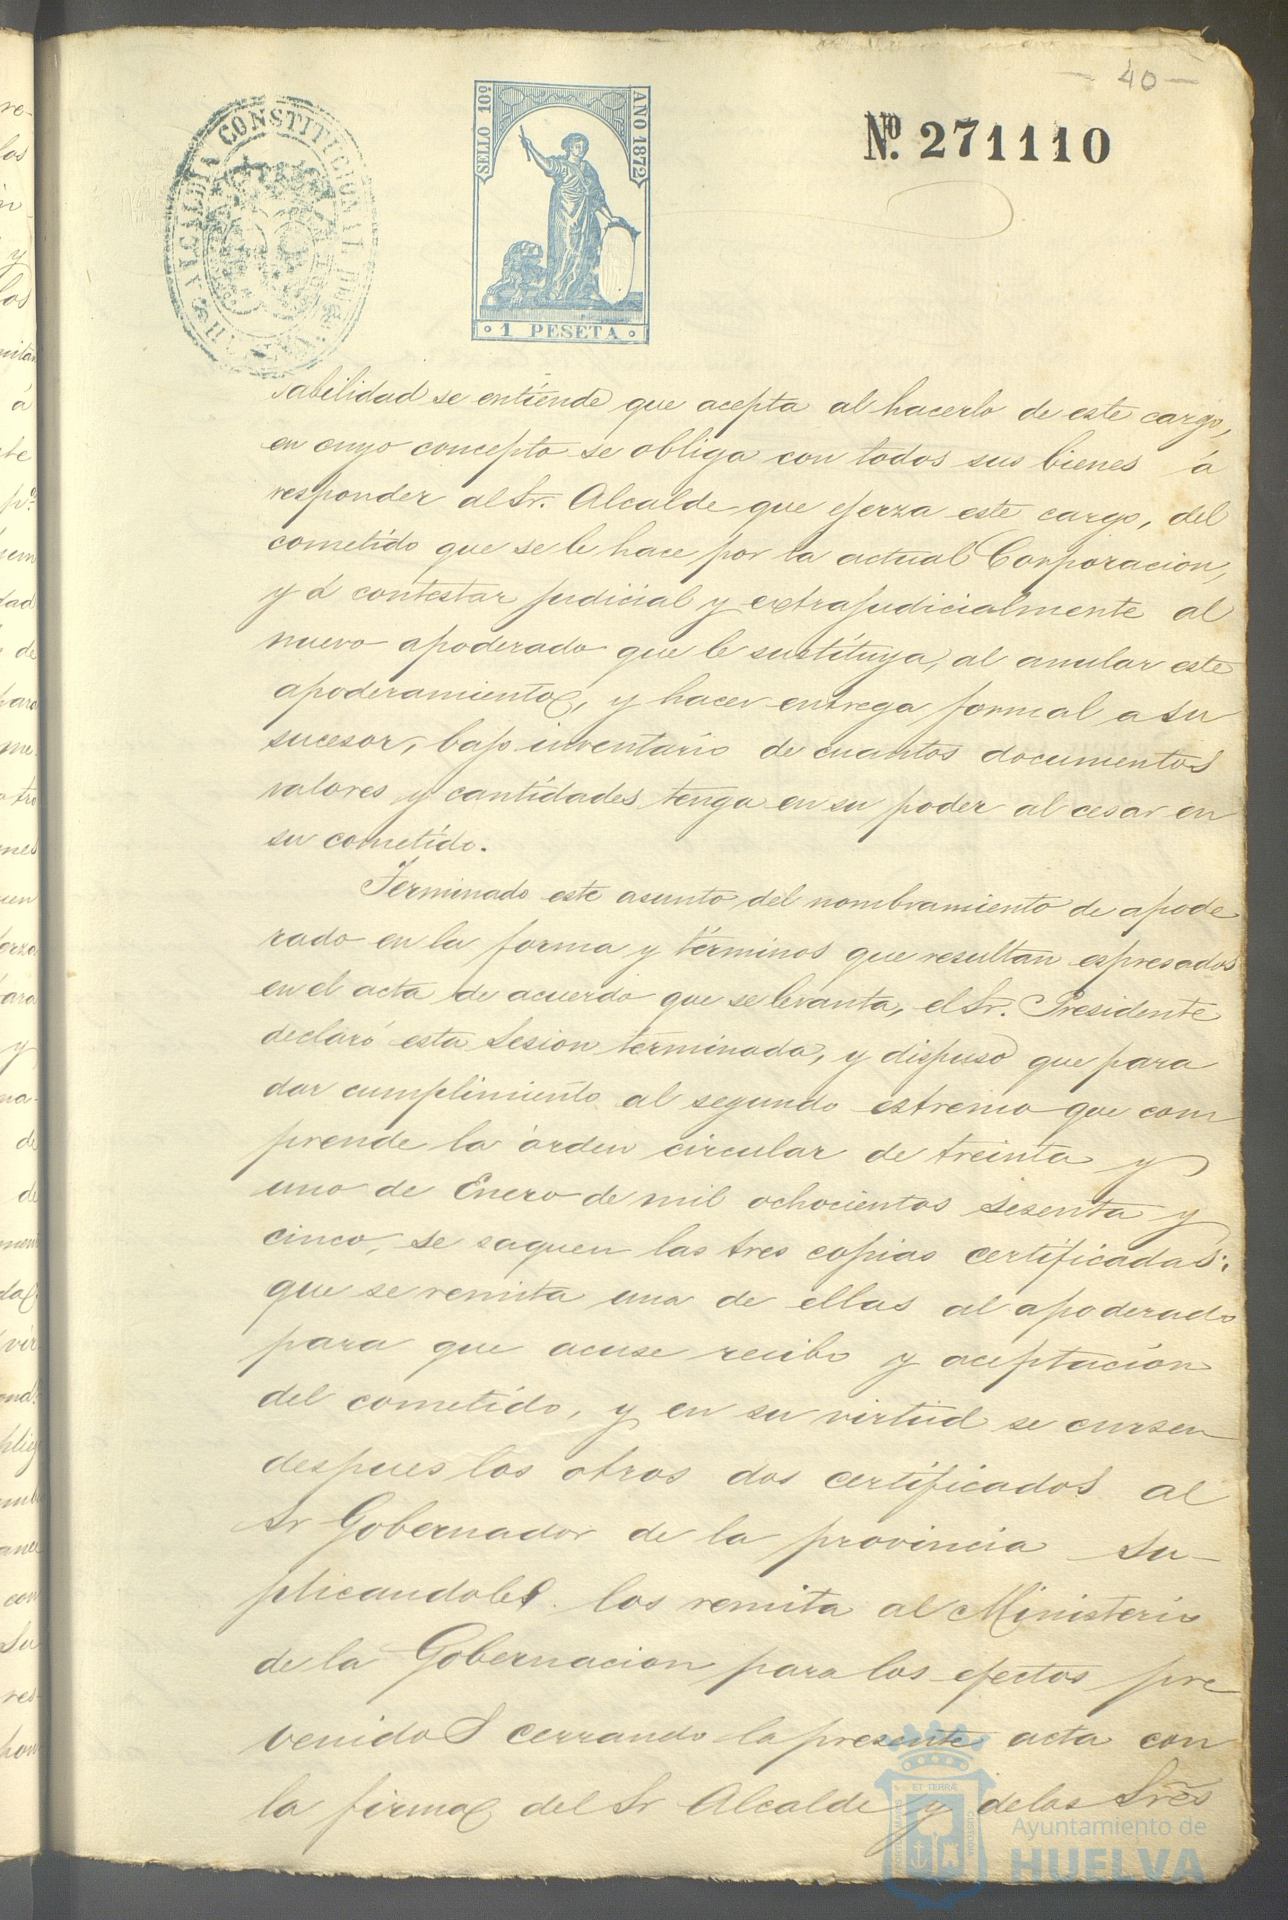 40
Nº. 271110
ALCALDIA CONSTITUCIONAL DE
SELLO 10º AÑO 1872
1 PESETA
sabilidad se entiende que acepta al hacerlo de este cargo,
en cuyo concepto se obliga con todos sus bienes á
responder al Sr. Alcalde que ejerza este cargo, del
cometido que se le hace por la actual Corporacion,
y á contestar judicial y extrajudicialmente al
nuevo apoderado que le sustituya, al anular este
apoderamiento, y hacer entrega formal a su
sucesor, bajo inventario de cuantos documentos
valores y cantidades tenga en su poder al cesar en
su cometido.
Terminado este asunto del nombramiento de apode
rado en la forma y términos que resultan espresados
en el acta de acuerdo que se levanta, el Sr. Presidente
declaró esta Sesion terminada, y dispuso que para
dar cumplimiento al segundo estremo que com
prende la órden circular de treinta y
uno de Enero de mil ochocientos sesenta y
cinco, se saquen las tres copias certificadas:
que se remita una de ellas al apoderado
para que acuse recibo y aceptacion
del cometido, y en su virtud se cursen
despues los otros dos certificados al
Sr Gobernador de la provincia su-
plicandole los remita al Ministerio
de la Gobernacion para los efectos pre
venidos cerrando la presente acta con
la firma del Sr Alcalde y de los Sres
Ayuntamiento de
HUELVA